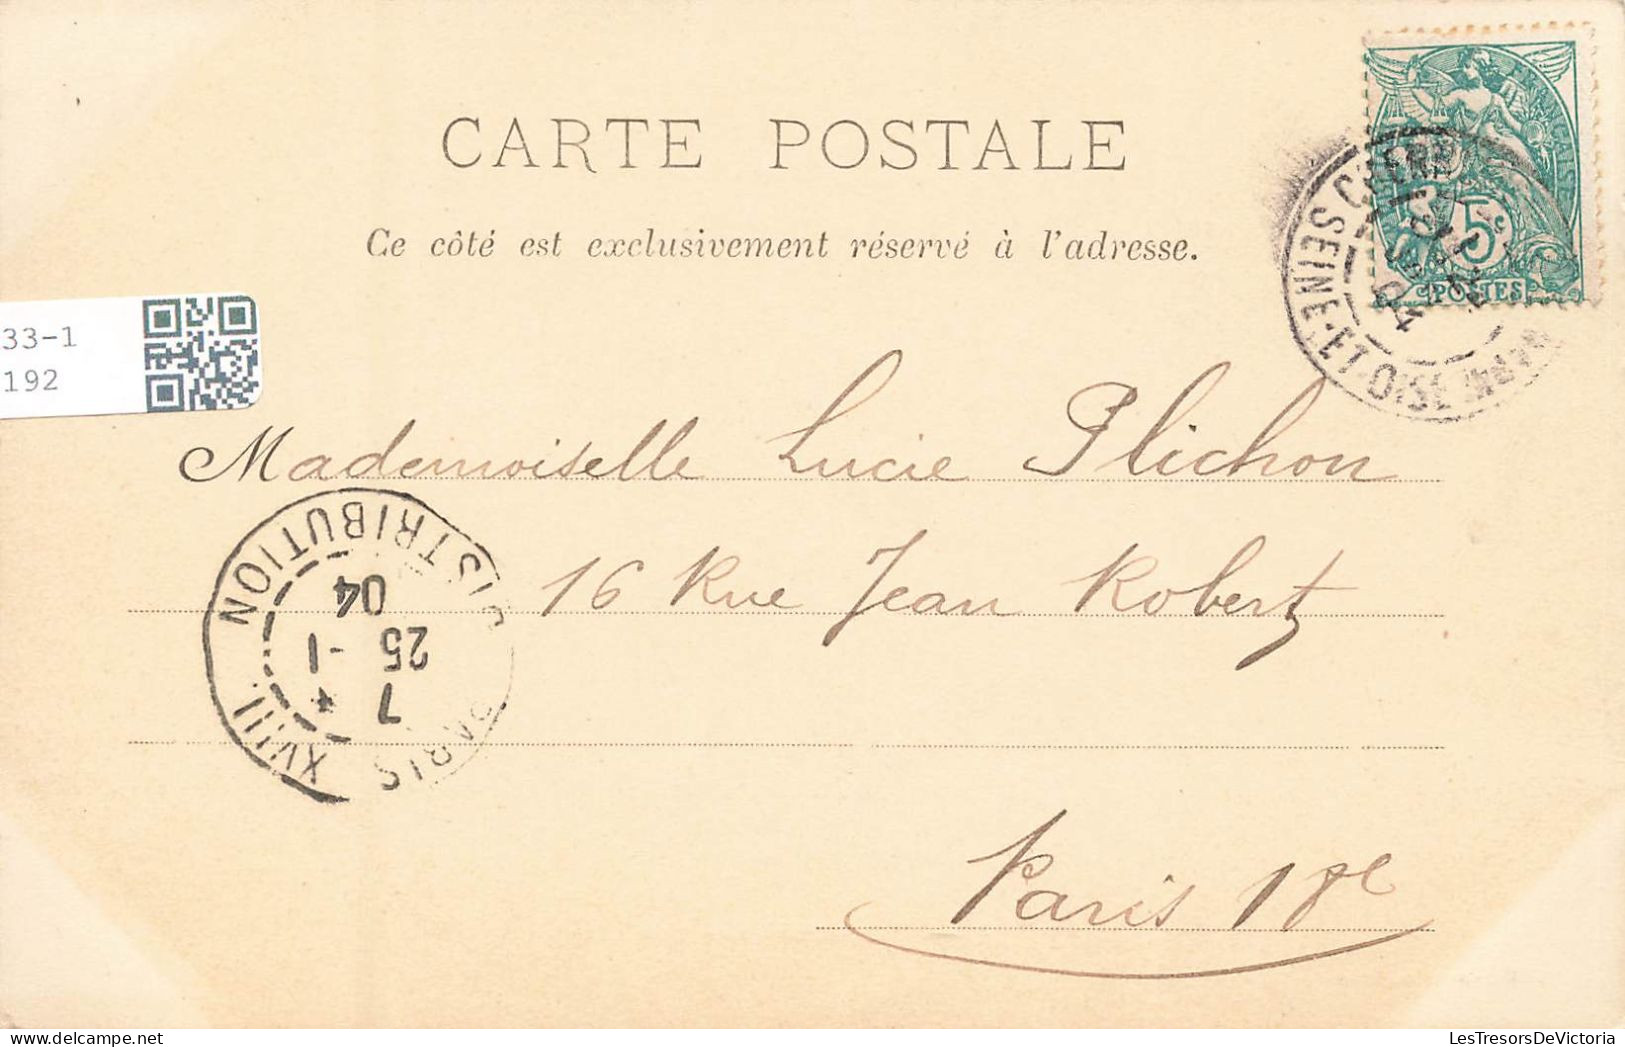 CARTE POSTALE
Ce côté est exclusivement réservé à l'adresse.
FRANÇAISE
5c
POSTES
SEINE-ET-OISE
04
33-1
192
Mademoiselle Lucie Plichon
16 Rue Jean Robert
Paris 18e
PARIS XVIII DISTRIBUTION
7 *
25 -1
04
LesTresorsDeVictoria